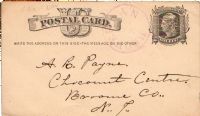 POSTAL CARD
WRITE THE ADDRESS ON THIS SIDE - THE MESSAGE ON THE OTHER
A. C. Payne,
Choconut Centre,
Broome Co.
N. Y.